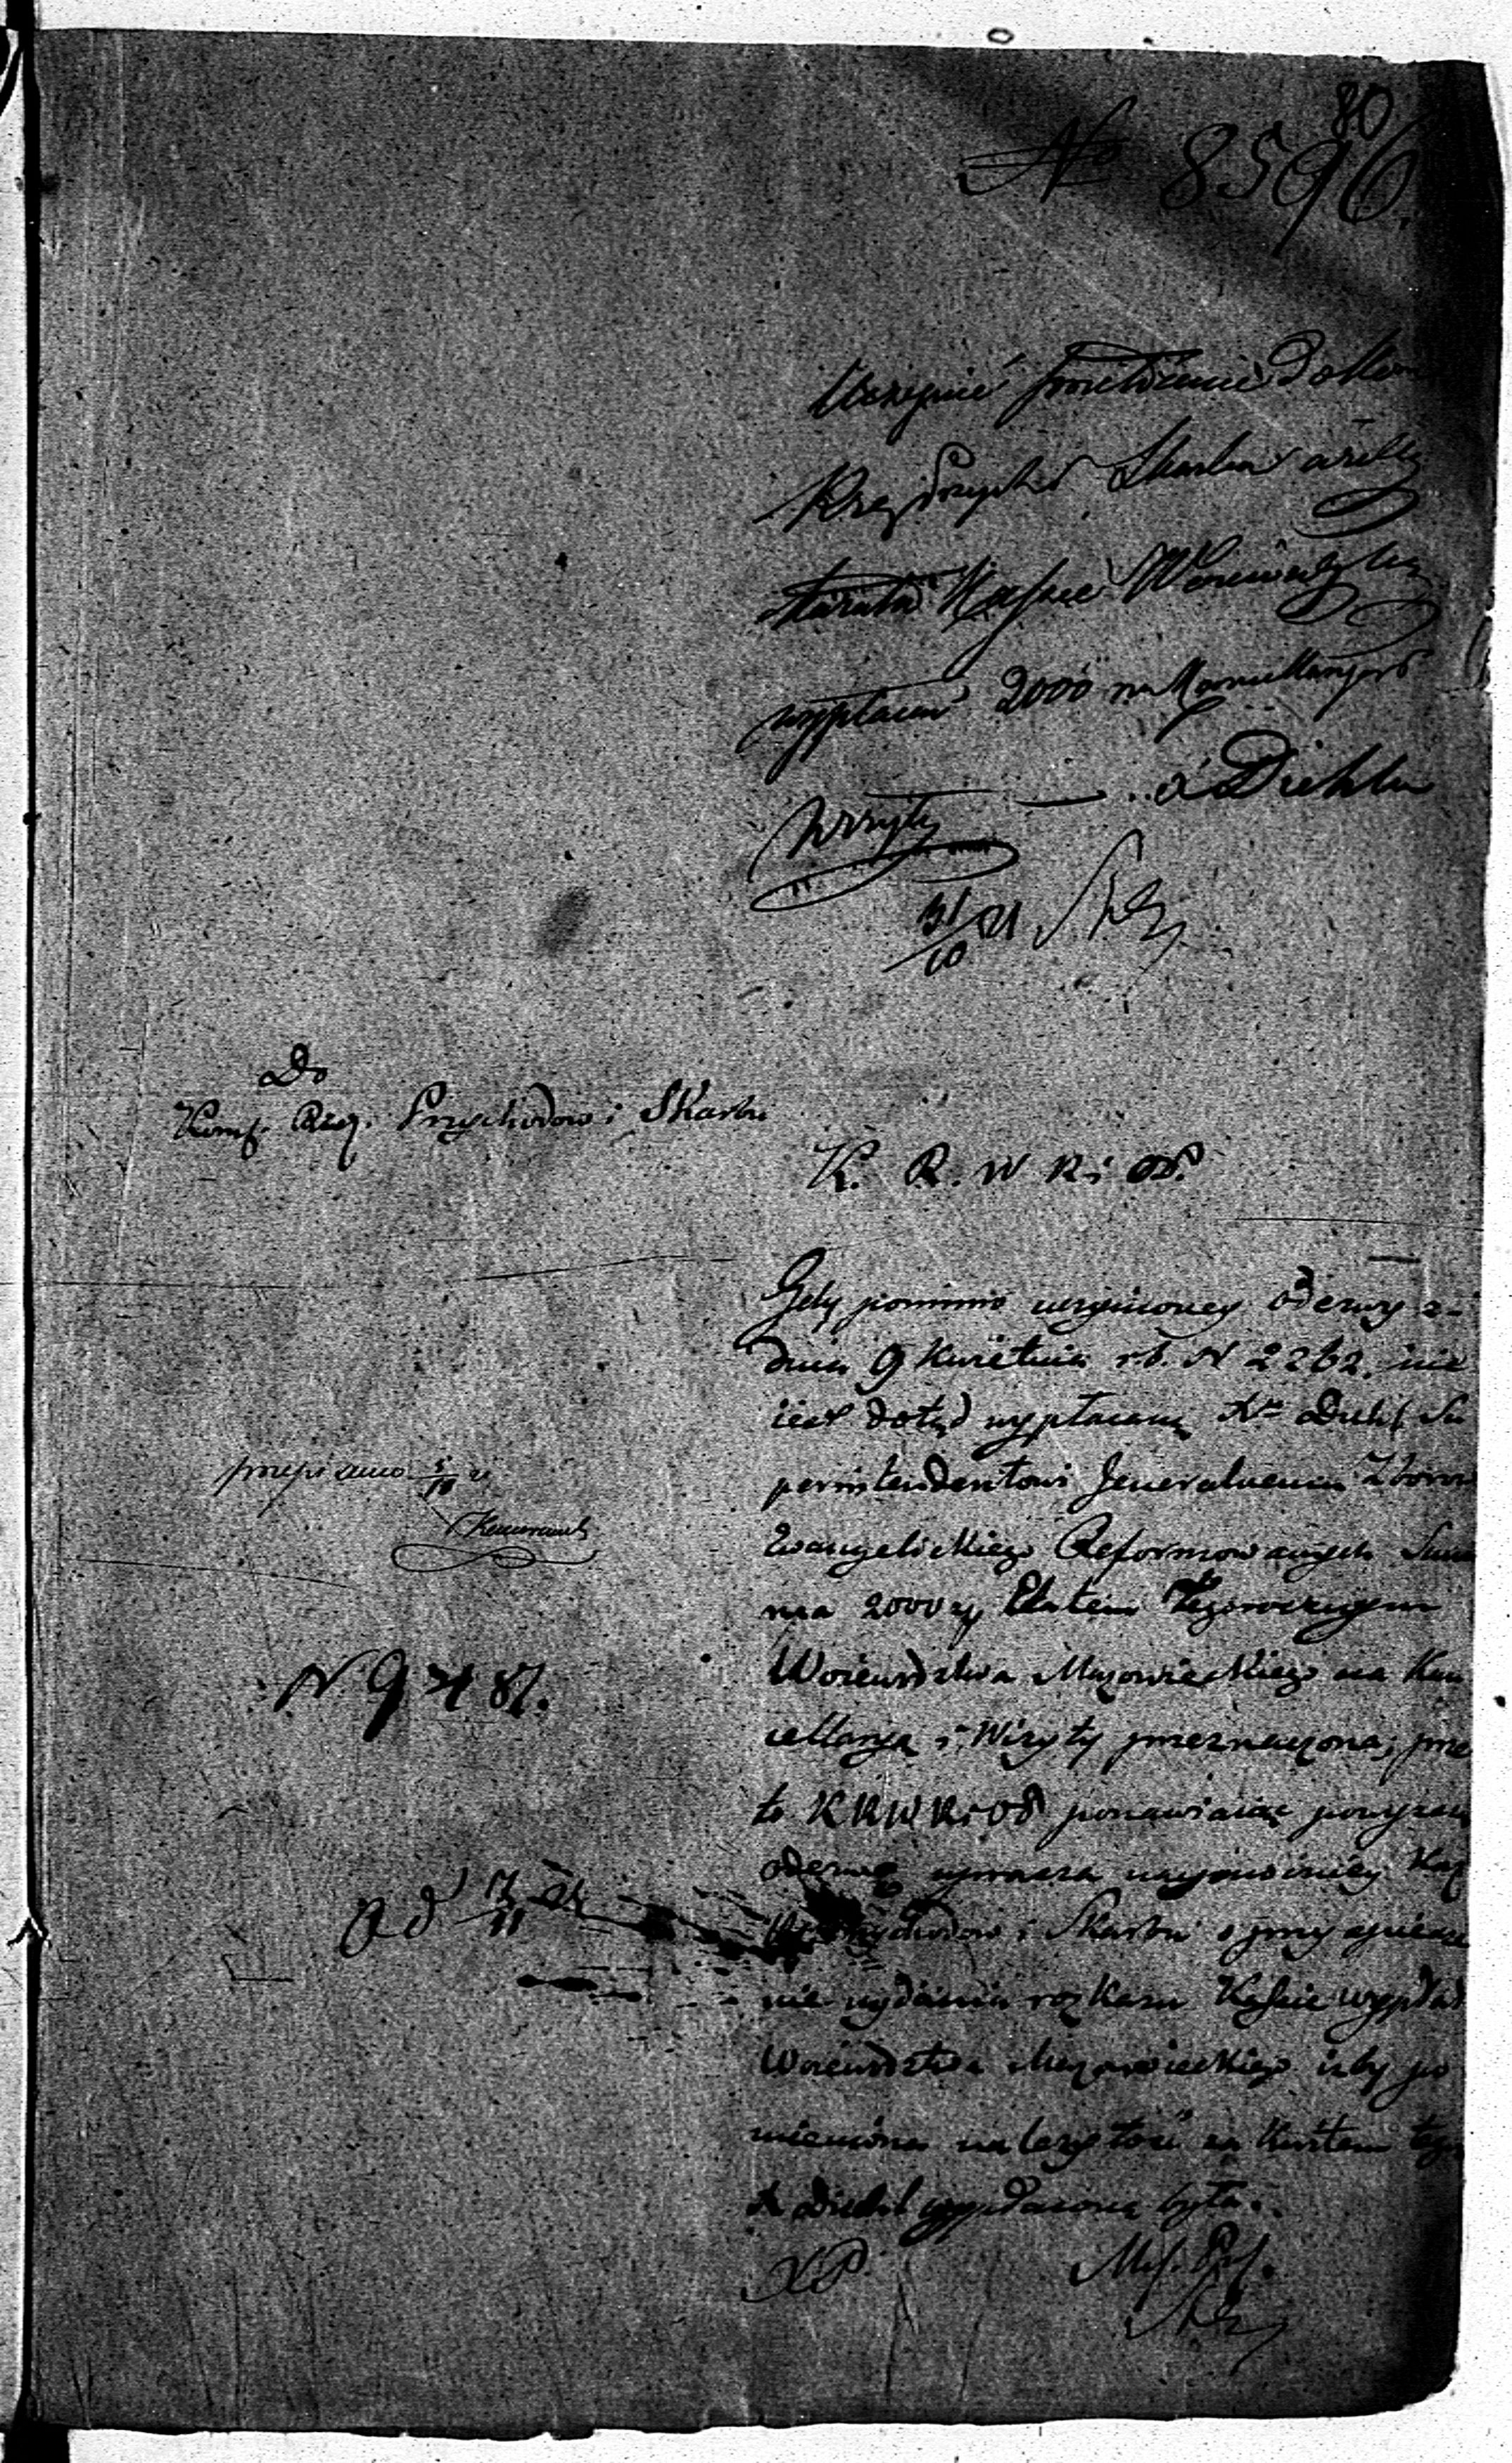 80
No 8596.
Uczynić przełożenie do Kom
Rzą Przychd Skarbu ażeby
Kassie Woiewódzkiey
wypłacić 2000 na Kancellaryą
i Wizyty — X Diehlu
31/10 21
Do
Komss. Rząd. Przychodów i Skarbu
K. R. W R i OP.
Gdy pomimo uczynioney odezwy z
dnia 9 Kwietnia r.b. N 2262. nie
iest dotąd wypłaconą Xu Diehl Su
perintendentowi Jeneralnemu Zborów
Ewangelickiego Reformowanych Sum
ma 2000 zł Etatem Tegorocznym
Woiewództwa Mazowieckiego na Kan
cellaryą i Wizyty przeznaczona, prze
to KRWRiOP ponawiaiąc powyższą
odezwę uprasza naymocniey Kom
Przychodów i Skarbu o przyspiesze
nie wydania rozkazu Kassie
Woiewództwa Mazowieckiego iżby po
mieniona należytość za Kwitem tegoż
X Diehl wypłaconą była.
przepisano 5/11 21
N 9487.
Od 17/11 21